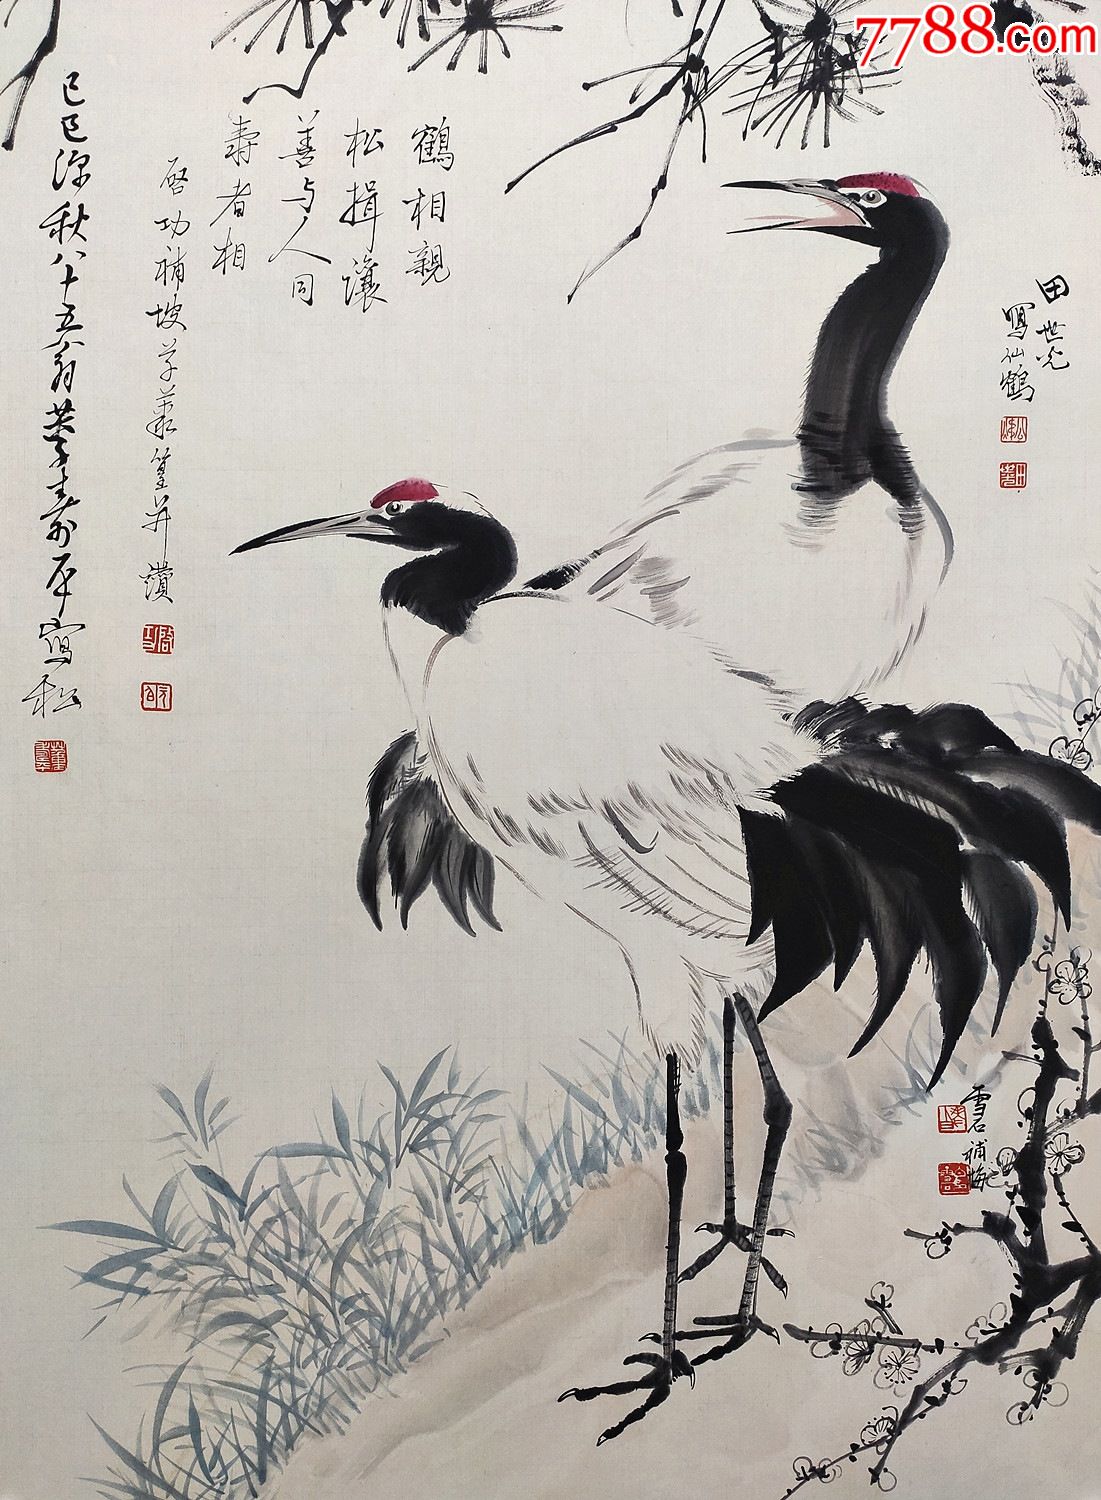 7788.com
鶴相親
松揖讓
善与人同
壽者相
啓功補坡草並篁并讚
己巳深秋八十五翁董壽平寫松
田世光
寫仙鶴
雪石補梅